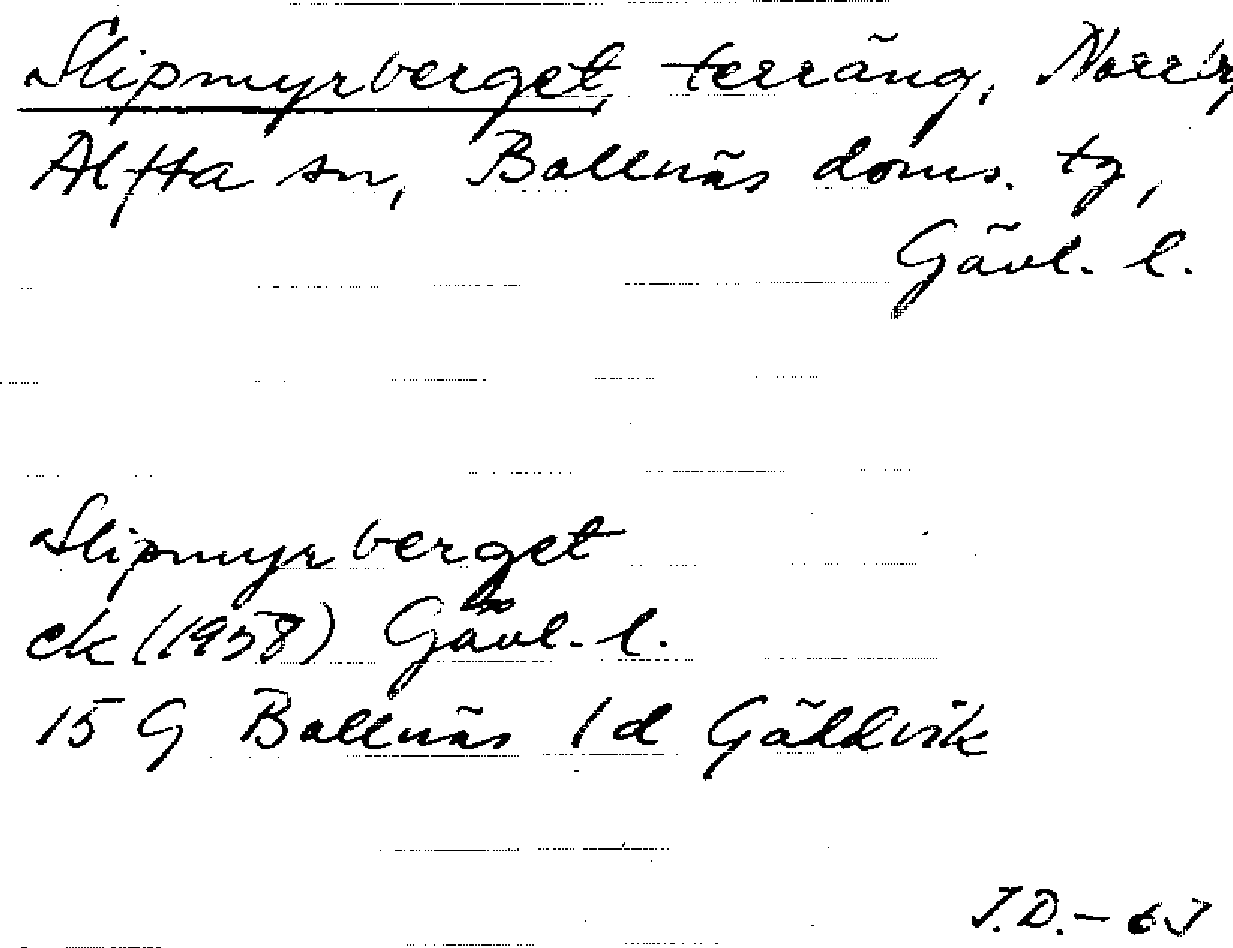 Slipmyrberget, terräng,
Alfta sn, Bollnäs doms. tg,
Gävl. l.
Slipmyrberget
ek (1958) Gävl. l.
15 G Bollnäs 1d Gäddvik
J.D. - 63